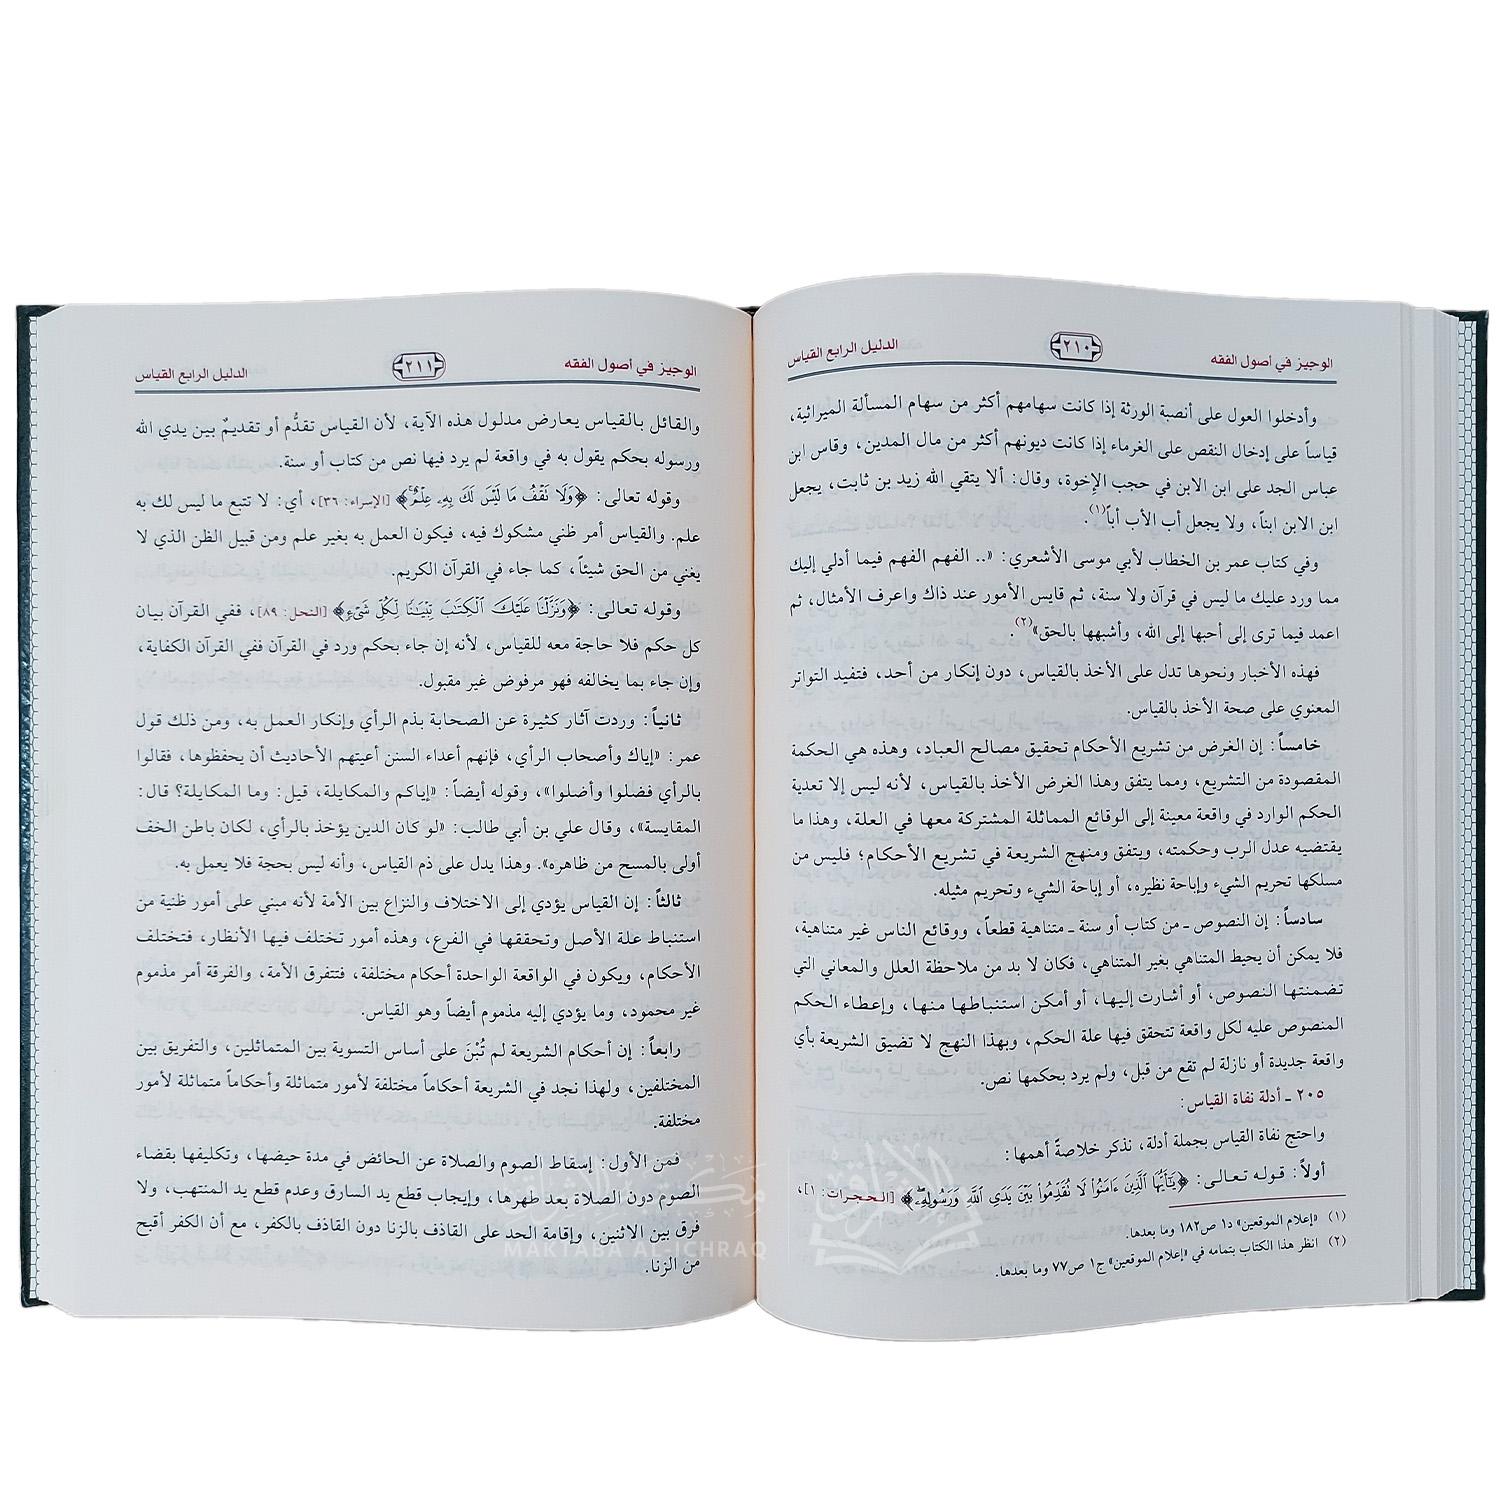 الوجيز في أصول الفقه ٢١٠ الدليل الرابع القياس
وأدخلوا العول على أنصبة الورثة إذا كانت سهامهم أكثر من سهام المسألة الميراثية،
قياساً على إدخال النقص على الغرماء إذا كانت ديونهم أكثر من مال المدين، وقاس ابن
عباس الجد على ابن الابن في حجب الإخوة، وقال: ألا يتقي الله زيد بن ثابت، يجعل
ابن الابن ابناً، ولا يجعل أب الأب أباً(١).
وفي كتاب عمر بن الخطاب لأبي موسى الأشعري: «.. الفهم الفهم فيما أدلي إليك
مما ورد عليك ما ليس في قرآن ولا سنة، ثم قايس الأمور عند ذاك واعرف الأمثال، ثم
اعمد فيما ترى إلى أحبها إلى الله، وأشبهها بالحق»(٢).
فهذه الأخبار ونحوها تدل على الأخذ بالقياس، دون إنكار من أحد، فتفيد التواتر
المعنوي على صحة الأخذ بالقياس.
خامساً: إن الغرض من تشريع الأحكام تحقيق مصالح العباد، وهذه هي الحكمة
المقصودة من التشريع، ومما يتفق وهذا الغرض الأخذ بالقياس، لأنه ليس إلا تعدية
الحكم الوارد في واقعة معينة إلى الوقائع المماثلة المشتركة معها في العلة، وهذا ما
يقتضيه عدل الرب وحكمته، ويتفق ومنهج الشريعة في تشريع الأحكام؛ فليس من
مسلكها تحريم الشيء وإباحة نظيره، أو إباحة الشيء وتحريم مثيله.
سادساً: إن النصوص ـ من كتاب أو سنة ـ متناهية قطعاً، ووقائع الناس غير متناهية،
فلا يمكن أن يحيط المتناهي بغير المتناهي، فكان لا بد من ملاحظة العلل والمعاني التي
تضمنتها النصوص، أو أشارت إليها، أو أمكن استنباطها منها، وإعطاء الحكم
المنصوص عليه لكل واقعة تتحقق فيها علة الحكم، وبهذا النهج لا تضيق الشريعة بأي
واقعة جديدة أو نازلة لم تقع من قبل، ولم يرد بحكمها نص.
٢٠٥ ـ أدلة نفاة القياس:
واحتج نفاة القياس بجملة أدلة، نذكر خلاصةً أهمها:
أولاً: قوله تعالى: ﴿يَٰٓأَيُّهَا ٱلَّذِينَ ءَامَنُوا۟ لَا تُقَدِّمُوا۟ بَيْنَ يَدَىِ ٱللَّهِ وَرَسُولِهِۦ﴾ [الحجرات: ١]،
(١) «إعلام الموقعين» د١ ص١٨٢ وما بعدها.
(٢) انظر هذا الكتاب بتمامه في «إعلام الموقعين» ج١ ص٧٧ وما بعدها.
الوجيز في أصول الفقه ٢١١ الدليل الرابع القياس
والقائل بالقياس يعارض مدلول هذه الآية، لأن القياس تقدُّم أو تقديمٌ بين يدي الله
ورسوله بحكم يقول به في واقعة لم يرد فيها نص من كتاب أو سنة.
وقوله تعالى: ﴿وَلَا تَقْفُ مَا لَيْسَ لَكَ بِهِۦ عِلْمٌ﴾ [الإسراء: ٣٦]، أي: لا تتبع ما ليس لك به
علم. والقياس أمر ظني مشكوك فيه، فيكون العمل به بغير علم ومن قبيل الظن الذي لا
يغني من الحق شيئاً، كما جاء في القرآن الكريم.
وقوله تعالى: ﴿وَنَزَّلْنَا عَلَيْكَ ٱلْكِتَٰبَ تِبْيَٰنًا لِّكُلِّ شَىْءٍ﴾ [النحل: ٨٩]، ففي القرآن بيان
كل حكم فلا حاجة معه للقياس، لأنه إن جاء بحكم ورد في القرآن ففي القرآن الكفاية،
وإن جاء بما يخالفه فهو مرفوض غير مقبول.
ثانياً: وردت آثار كثيرة عن الصحابة بذم الرأي وإنكار العمل به، ومن ذلك قول
عمر: «إياك وأصحاب الرأي، فإنهم أعداء السنن أعيتهم الأحاديث أن يحفظوها، فقالوا
بالرأي فضلوا وأضلوا»، وقوله أيضاً: «إياكم والمكايلة، قيل: وما المكايلة؟ قال:
المقايسة»، وقال علي بن أبي طالب: «لو كان الدين يؤخذ بالرأي، لكان باطن الخف
أولى بالمسح من ظاهره». وهذا يدل على ذم القياس، وأنه ليس بحجة فلا يعمل به.
ثالثاً: إن القياس يؤدي إلى الاختلاف والنزاع بين الأمة لأنه مبني على أمور ظنية من
استنباط علة الأصل وتحققها في الفرع، وهذه أمور تختلف فيها الأنظار، فتختلف
الأحكام، ويكون في الواقعة الواحدة أحكام مختلفة، فتتفرق الأمة، والفرقة أمر مذموم
غير محمود، وما يؤدي إليه مذموم أيضاً وهو القياس.
رابعاً: إن أحكام الشريعة لم تُبْنَ على أساس التسوية بين المتماثلين، والتفريق بين
المختلفين، ولهذا نجد في الشريعة أحكاماً مختلفة لأمور متماثلة وأحكاماً متماثلة لأمور
مختلفة.
فمن الأول: إسقاط الصوم والصلاة عن الحائض في مدة حيضها، وتكليفها بقضاء
الصوم دون الصلاة بعد طهرها، وإيجاب قطع يد السارق وعدم قطع يد المنتهب، ولا
فرق بين الاثنين، وإقامة الحد على القاذف بالزنا دون القاذف بالكفر، مع أن الكفر أقبح
من الزنا.
مكتبة الإشراق
MAKTABA AL-ICHRAQ